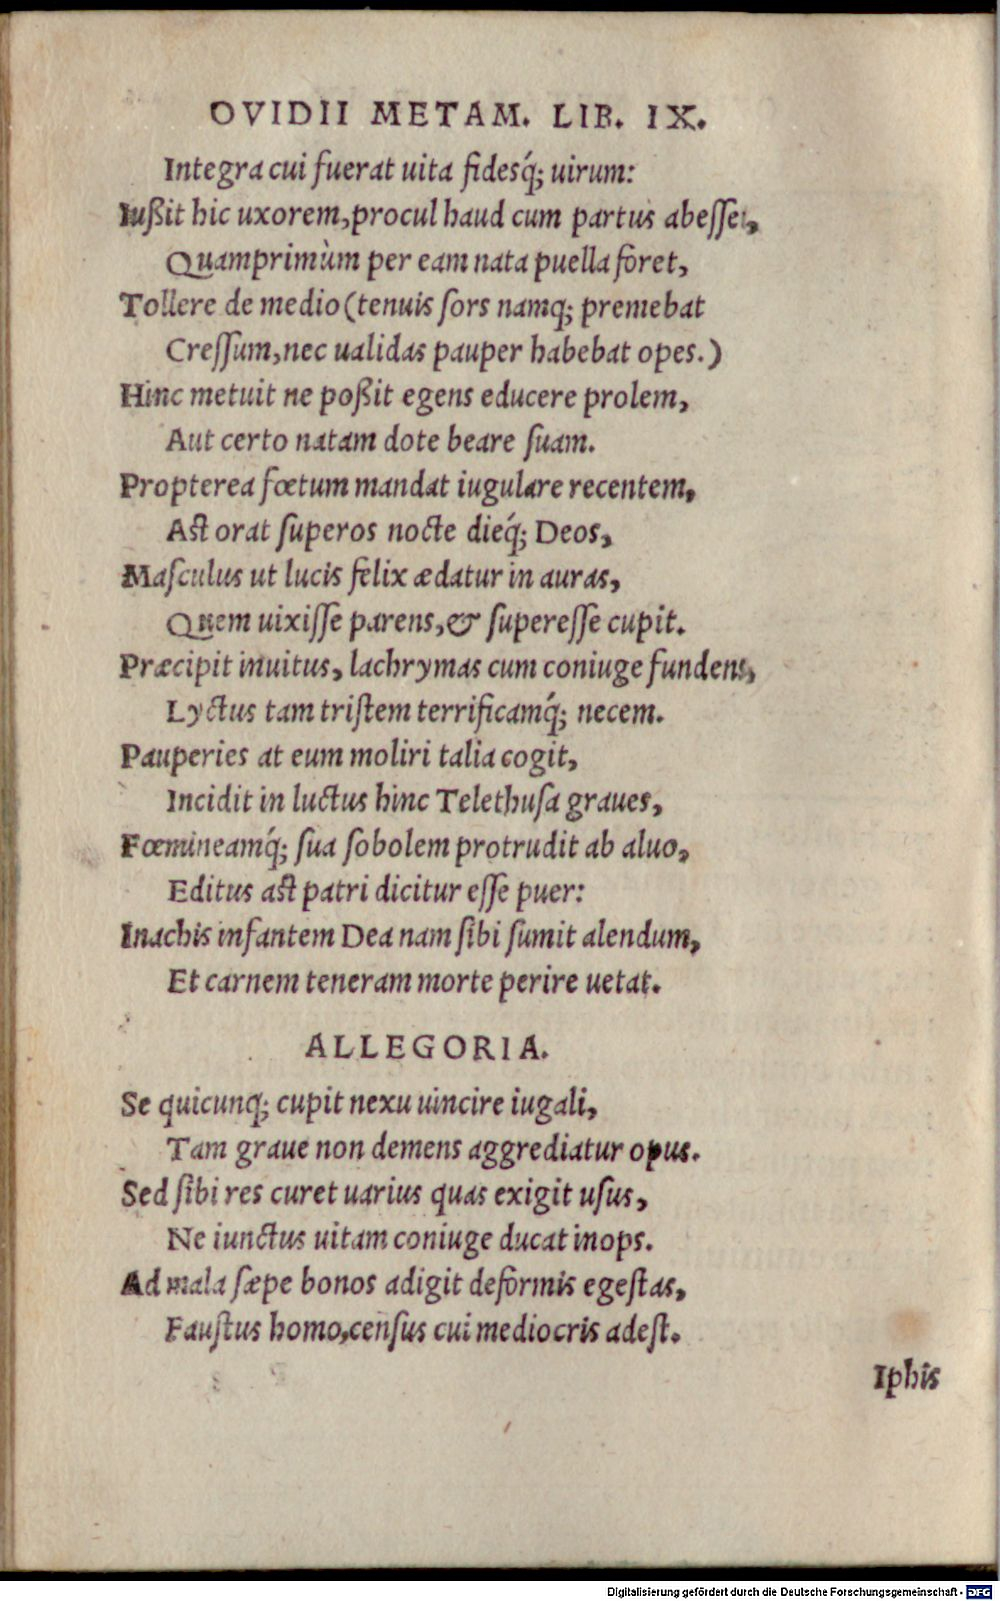 OVIDII METAM. LIB. IX.
Integra cui fuerat uita fidesq́; uirum:
Iußit hic uxorem, procul haud cum partus abesset,
Quamprimùm per eam nata puella foret,
Tollere de medio (tenuis sors namq; premebat
Cressum, nec ualidas pauper habebat opes.)
Hinc metuit ne poßit egens educere prolem,
Aut certo natam dote beare suam.
Propterea fœtum mandat iugulare recentem,
Ast orat superos nocte dieq́; Deos,
Masculus ut lucis felix ædatur in auras,
Quem uixisse parens, & superesse cupit.
Præcipit inuitus, lachrymas cum coniuge fundens,
Lyctus tam tristem terrificamq́; necem.
Pauperies at eum moliri talia cogit,
Incidit in luctus hinc Telethusa graues,
Fœmineamq́; sua sobolem protrudit ab aluo,
Editus ast patri dicitur esse puer:
Inachis infantem Dea nam sibi sumit alendum,
Et carnem teneram morte perire uetat.
ALLEGORIA.
Se quicunq; cupit nexu uincire iugali,
Tam graue non demens aggrediatur opus.
Sed sibi res curet uarius quas exigit usus,
Ne iunctus uitam coniuge ducat inops.
Ad mala sæpe bonos adigit deformis egestas,
Faustus homo, census cui mediocris adest.
Iphis
Digitalisierung gefördert durch die Deutsche Forschungsgemeinschaft - DFG